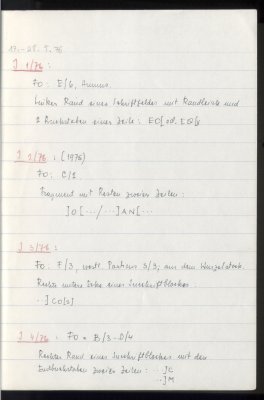 17.-28. 5. 76
I 1/76 :
FO: E/6, Humus.
Linker Rand eines Schriftfeldes mit Randleiste und
2 Buchstaben einer Zeile: EO[ od. EQ[
I 2/76 : (1976)
FO: C/2
Fragment mit Resten zweier Zeilen:
]O[.../...]AN[...
I 3/76 :
FO: F/3, westl. Porticus 3/3, aus dem Wurzelstock.
Rechte untere Ecke eines Inschriftblockes.
..]CO[S]
I 4/76 : FO = B/3-D/4
Rechter Rand eines Inschriftblockes mit den
Endbuchstaben zweier Zeilen: ...]C
...]M